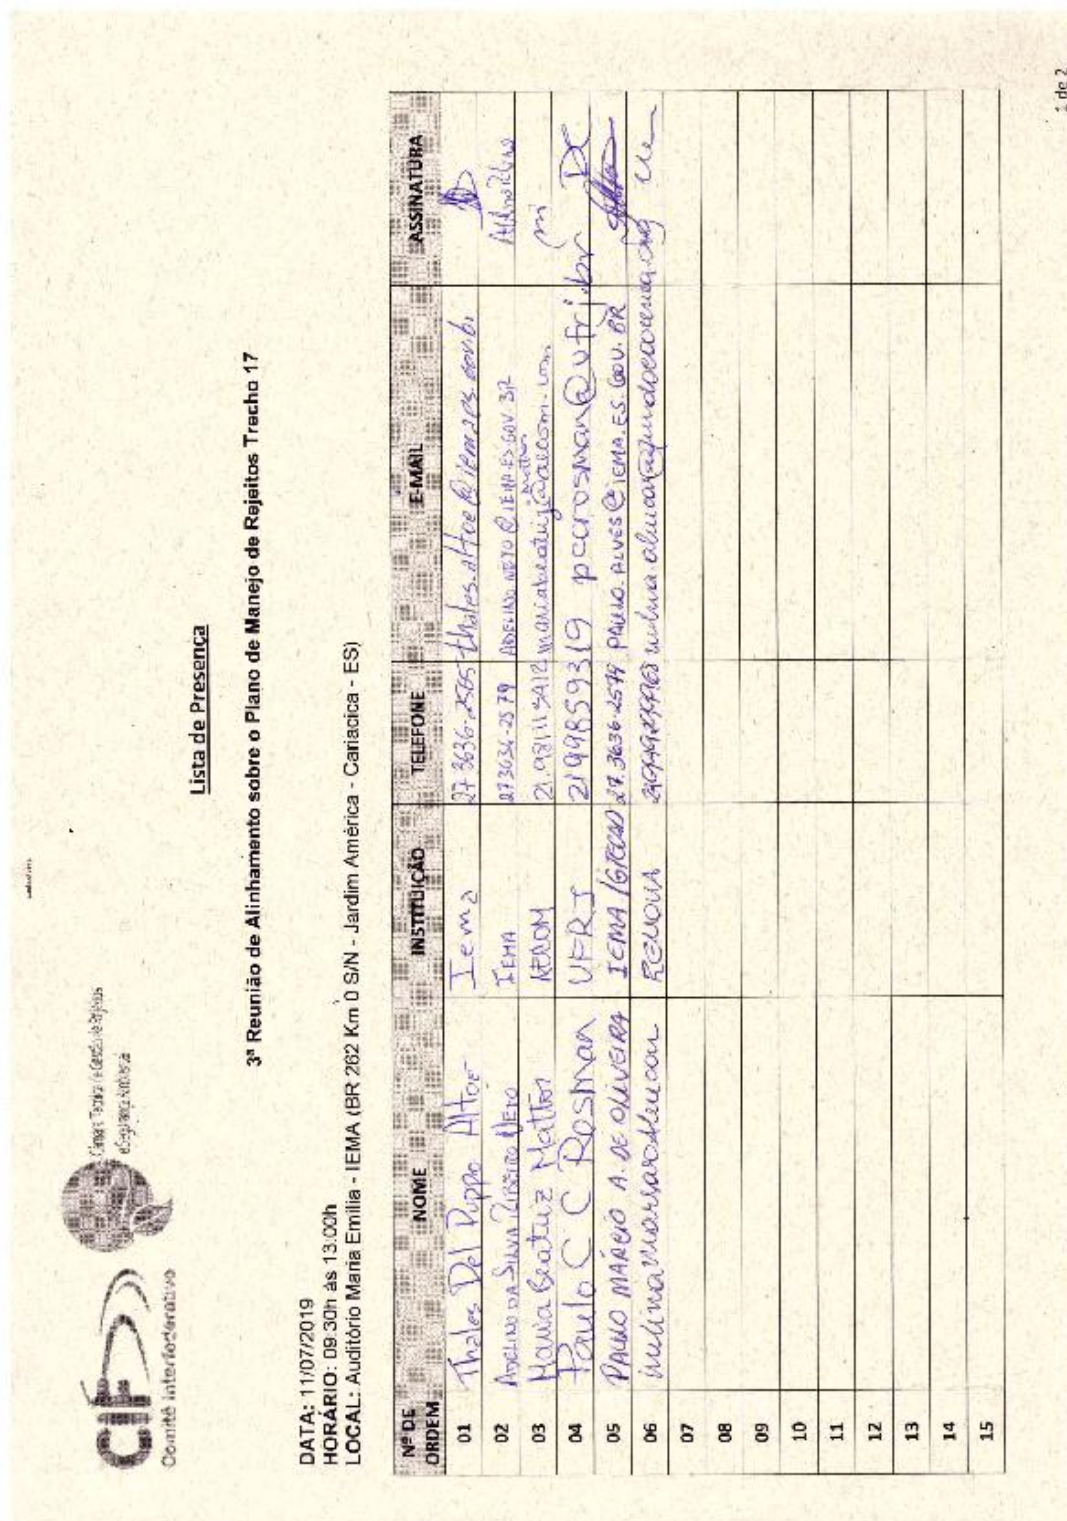 CIF
Comitê Interfederativo
Câmara Técnica de Gestão de Rejeitos
e Segurança Ambiental
Lista de Presença
3ª Reunião de Alinhamento sobre o Plano de Manejo de Rejeitos Trecho 17
DATA: 11/07/2019
HORÁRIO: 09:30h às 13:00h
LOCAL: Auditório Maria Emília - IEMA (BR 262 Km 0 S/N - Jardim América - Cariacica - ES)
Nº DE ORDEM NOME INSTITUIÇÃO TELEFONE E-MAIL ASSINATURA
01 Thales Del Puppo Altoé Iema 27 3636-2565 thales.altoe@iema.es.gov.br
02 ADELINO DA SILVA RIBEIRO NETO IEMA 273636-2579 ADELINO.NETO@IEMA.ES.GOV.BR
03 Maria Beatriz Mattos AECOM 21.981115412 mariabeatriz.mattos@aecom.com
04 Paulo C C Rosman UFRJ 21998559319 pccrosman@ufrj.br
05 PAULO MÁRCIO A. DE OLIVEIRA IEMA 27.3636-2579 PAULO.ALVES@IEMA.ES.GOV.BR
06 RENOVA
07
08
09
10
11
12
13
14
15
1 de 2